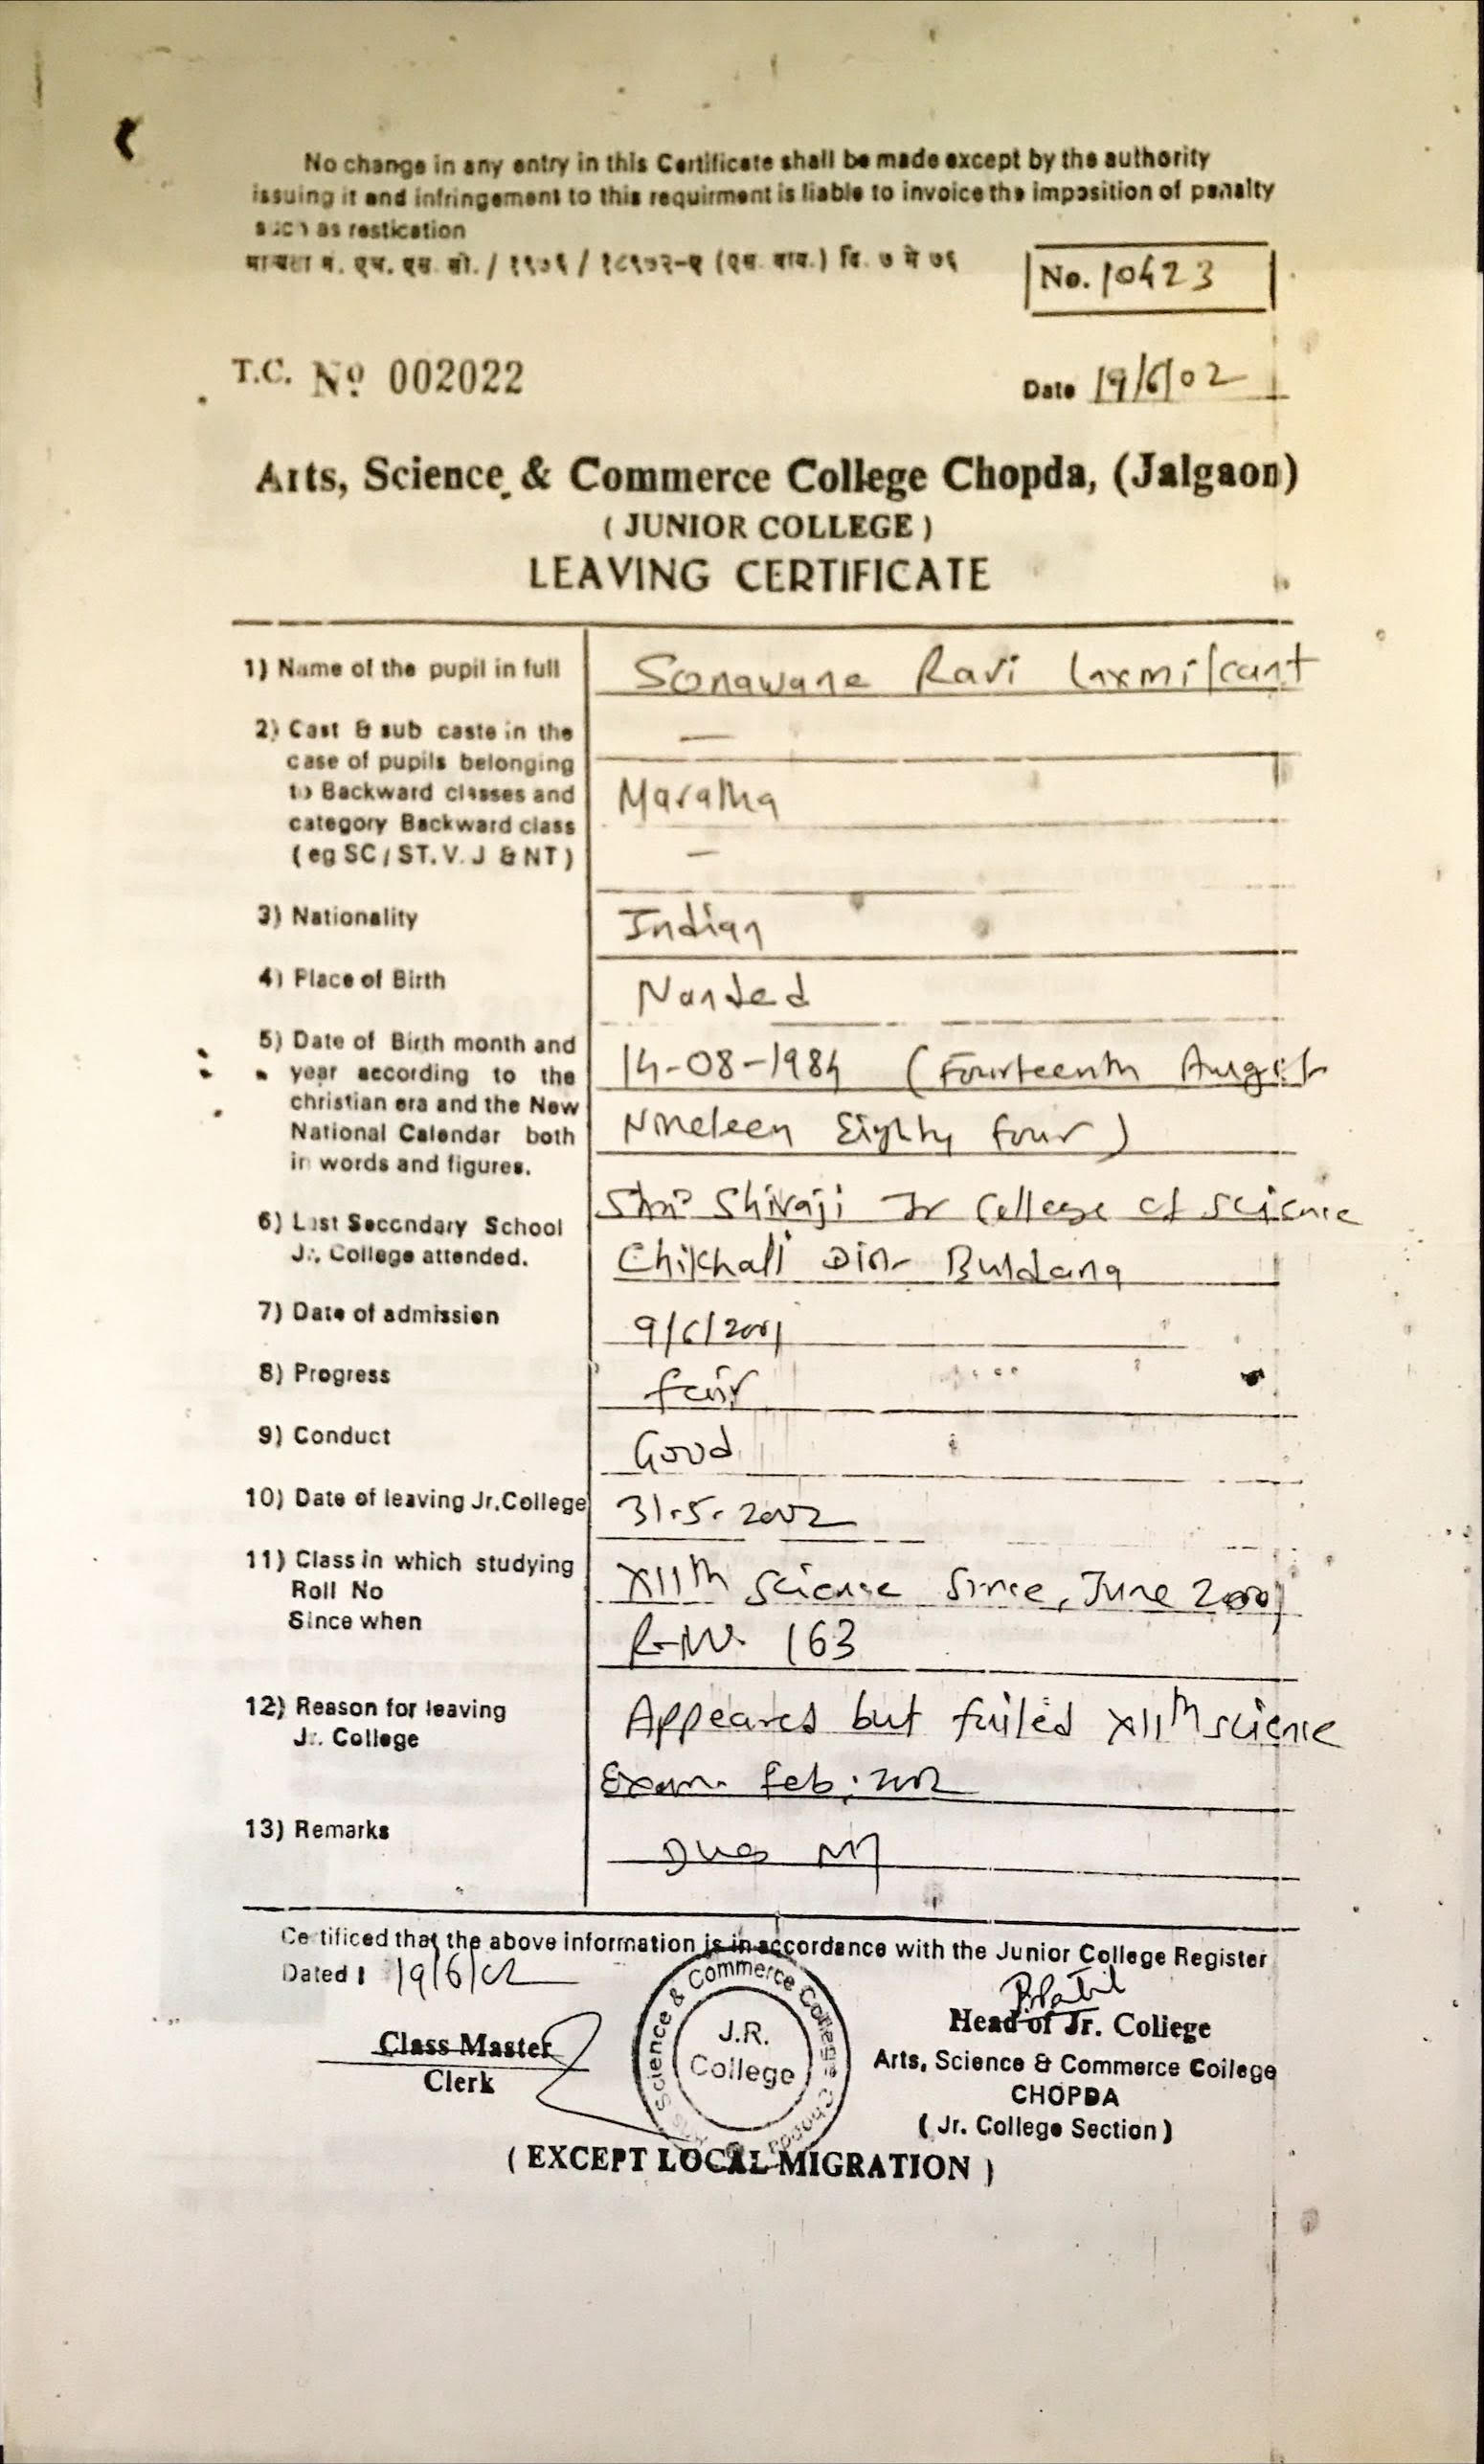 No change in any entry in this Certificate shall be made except by the authority
issuing it and infringement to this requirment is liable to invoice the imposition of penalty
such as restication
No. 10423
T.C. No 002022
Date 19/6/02
Arts, Science & Commerce College Chopda, (Jalgaon)
( JUNIOR COLLEGE )
LEAVING CERTIFICATE
1) Name of the pupil in full Sonawane Ravi Laxmikant
2) Cast & sub caste in the —
case of pupils belonging
to Backward classes and Maratha
category Backward class
( eg SC / ST. V. J & NT ) —
3) Nationality Indian
4) Place of Birth Nanded
5) Date of Birth month and 14-08-1984 (Fourteenth August
year according to the
christian era and the New
National Calendar both Nineteen Eighty four)
in words and figures.
6) Last Secondary School Shri Shivaji Jr College of Science
Jr. College attended. Chikhali Dist Buldana
7) Date of admission 9/6/2001
8) Progress fair
9) Conduct Good
10) Date of leaving Jr. College 31.5.2002
11) Class in which studying XIIth Science Since, June 2001
Roll No
Since when R-No. 163
12) Reason for leaving Appeared but failed XIIth science
Jr. College Exam. Feb. 2002
13) Remarks Dues Nil
Certificed that the above information is in accordance with the Junior College Register
Dated : 19/6/02
Class Master
Clerk
Science & Commerce College Chopda
J.R.
College
BPatil
Head of Jr. College
Arts, Science & Commerce College
CHOPDA
( Jr. College Section )
( EXCEPT LOCAL MIGRATION )